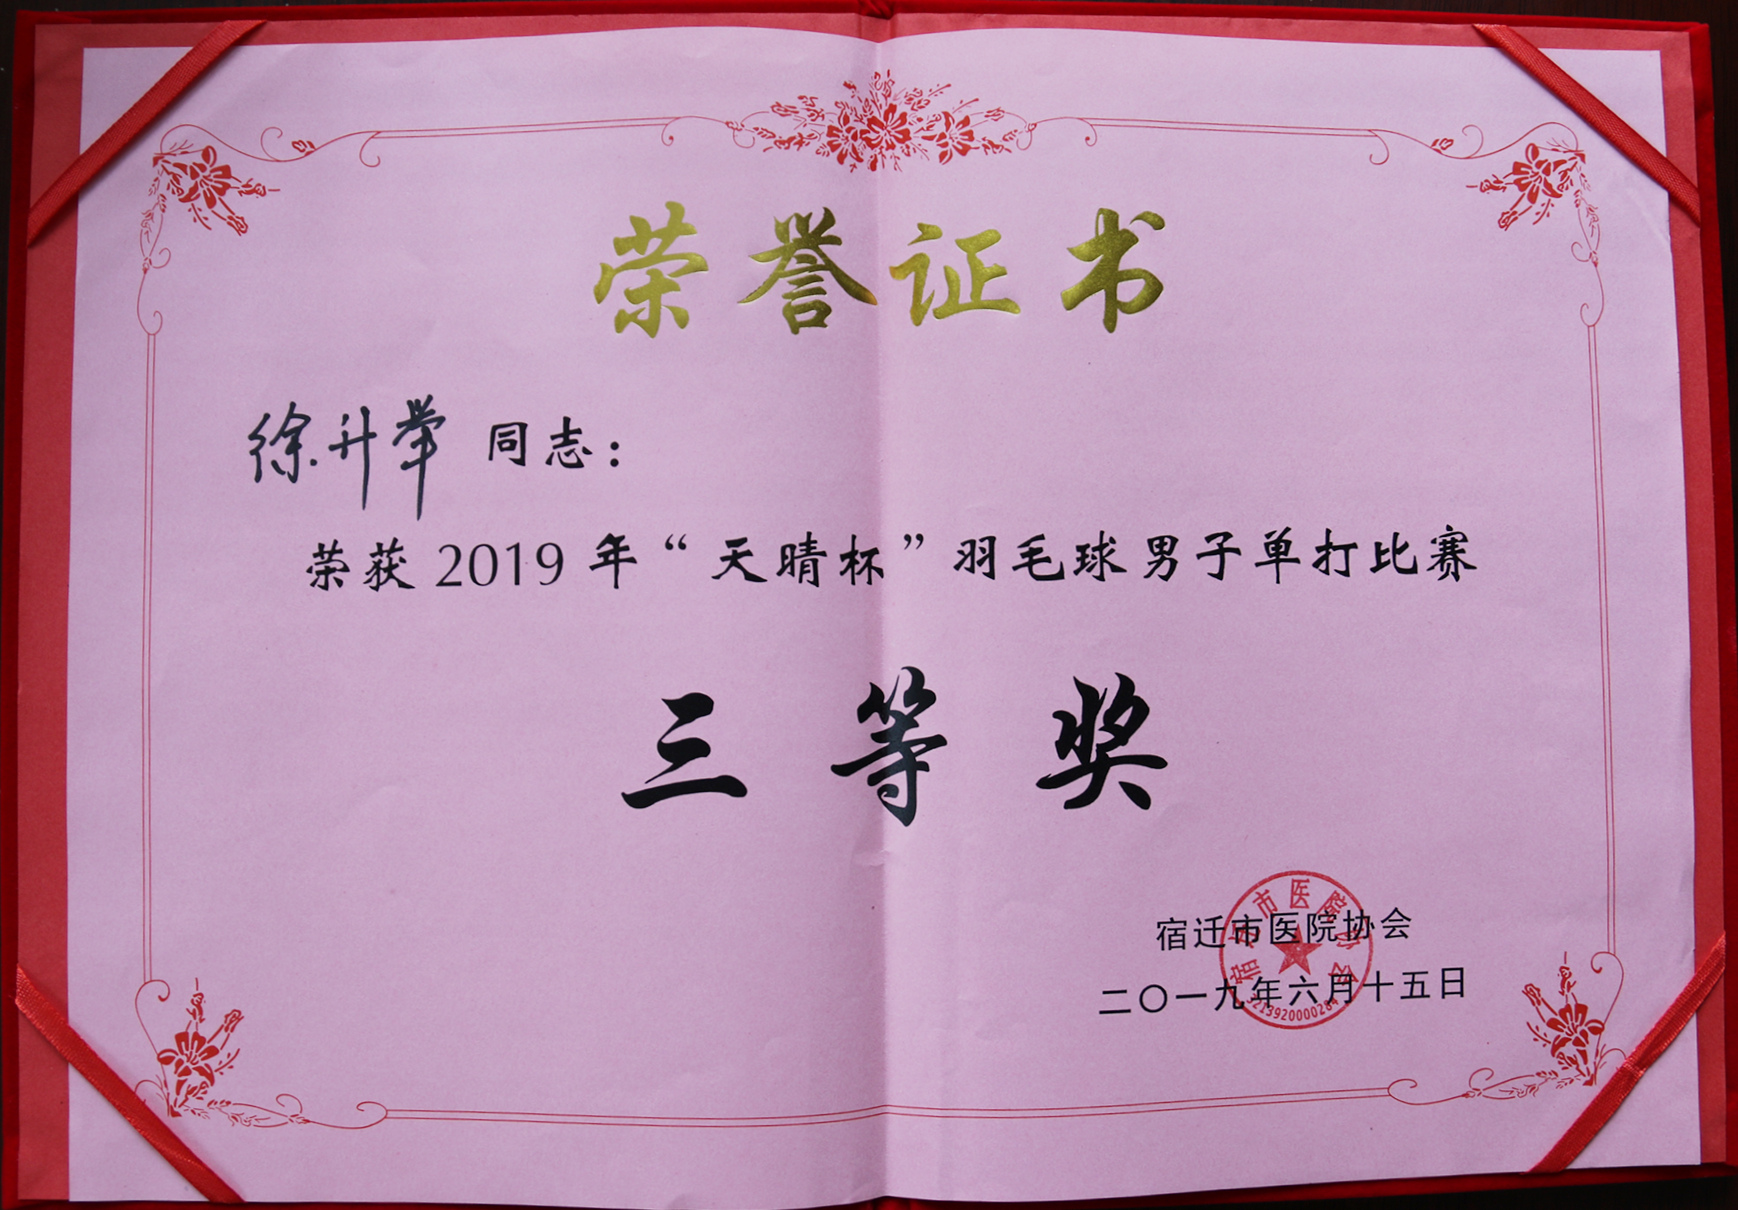 荣誉证书
徐升举 同志：
荣获 2019 年“天晴杯”羽毛球男子单打比赛
三等奖
宿迁市医院协会
二〇一九年六月十五日
宿迁市医院协会